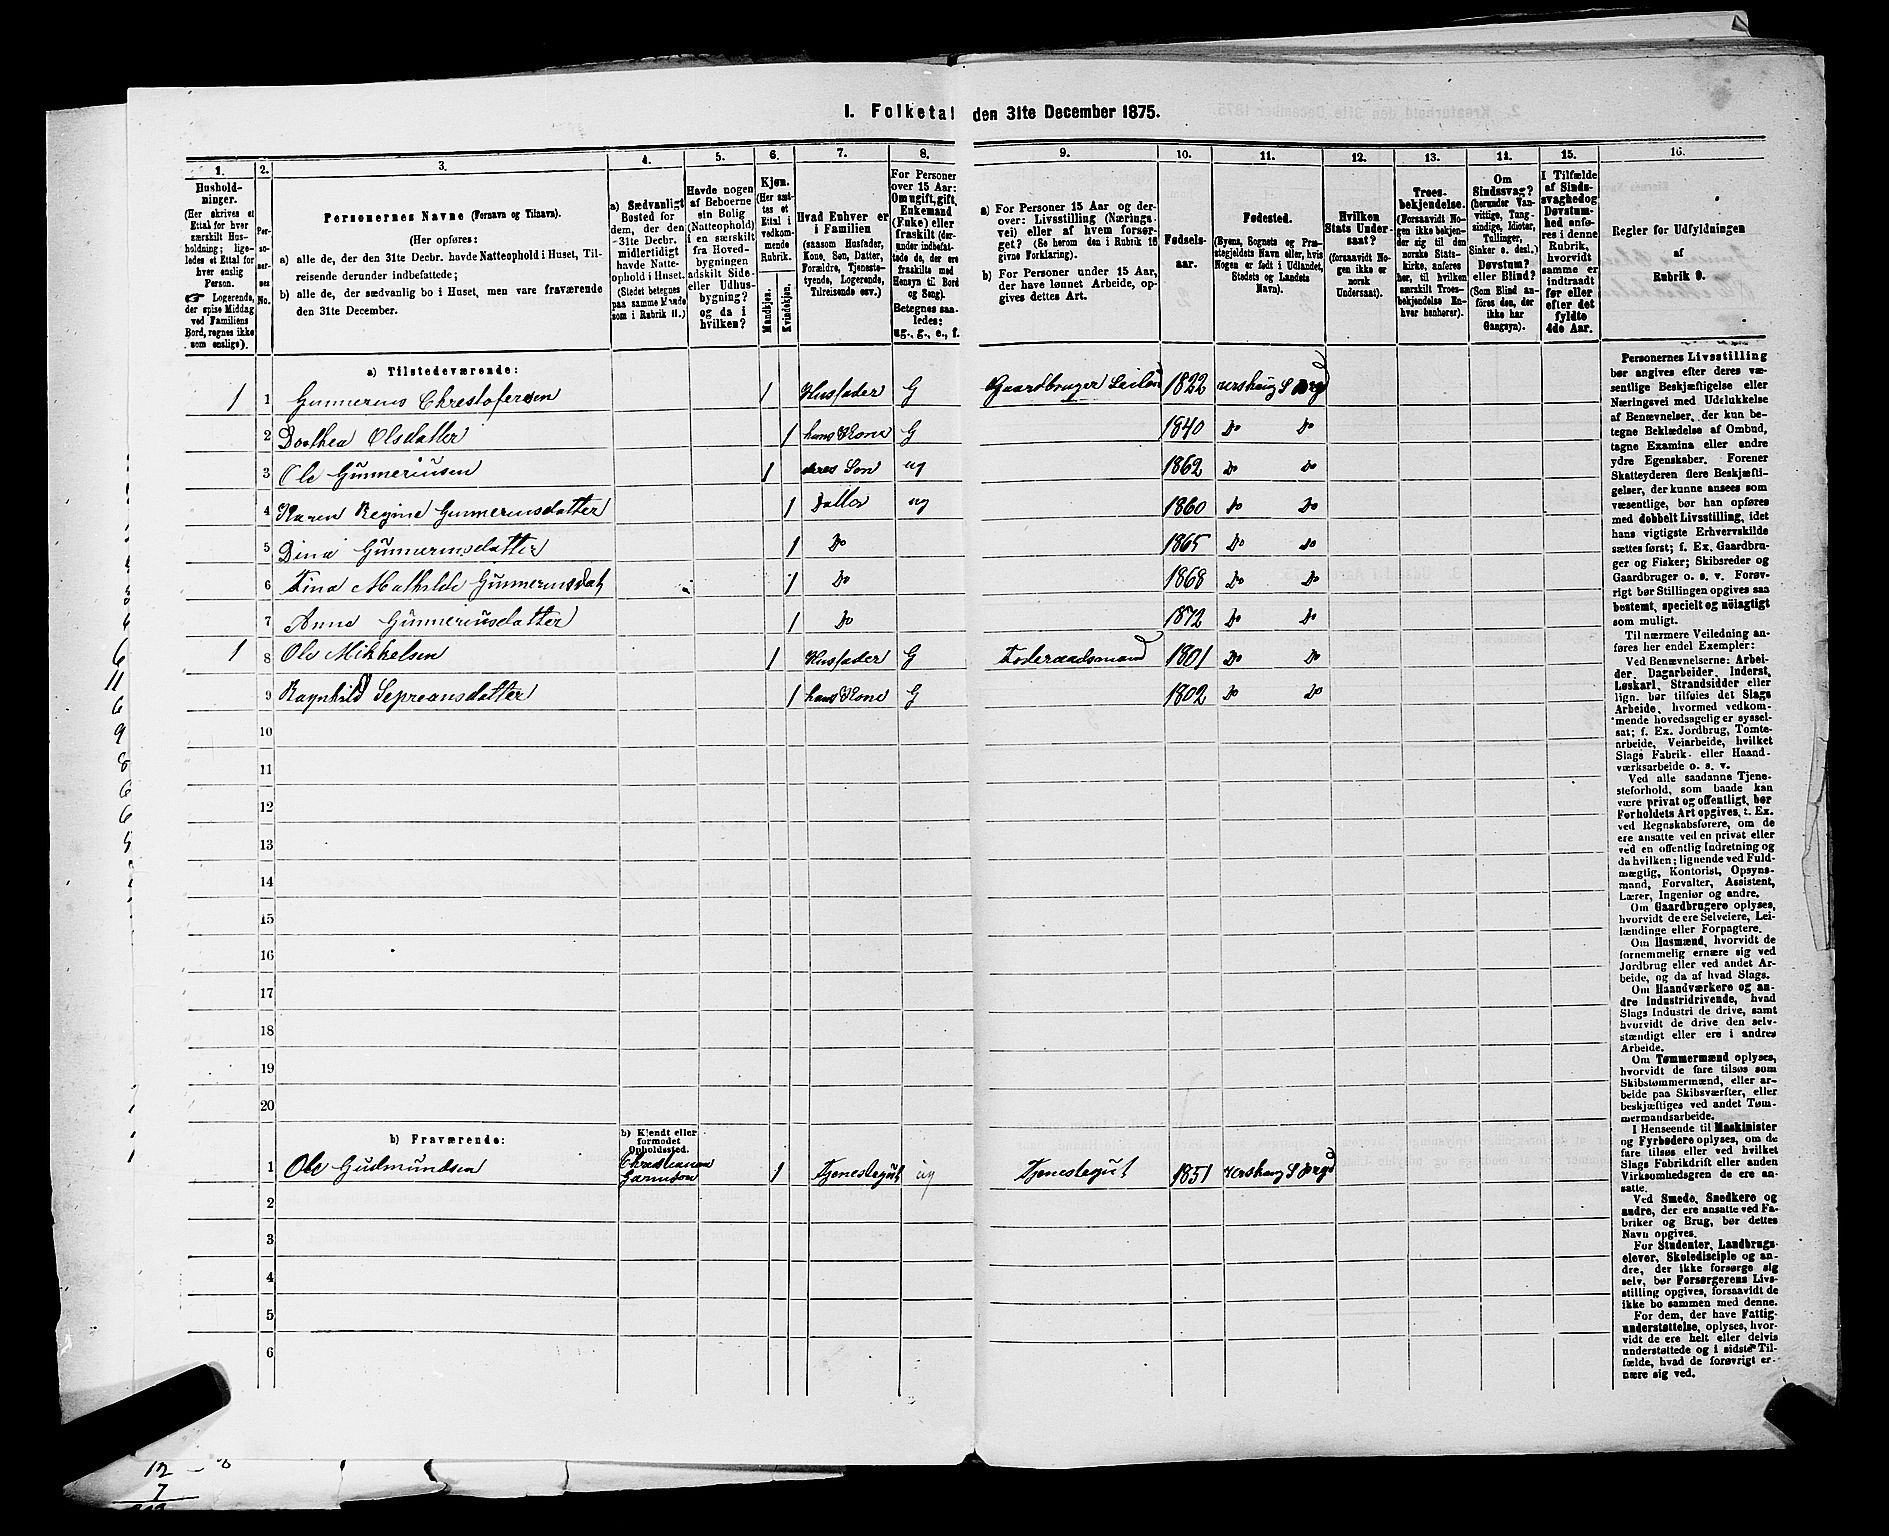 I. Folketal den 31te December 1875.
1.
2.
3.
4.
5.
6.
7.
8.
9.
10.
11.
12.
13.
14.
15.
16.
Hushold-
ninger.
(Her skrives et
Ettal for hver
særskilt Hus-
holdning; lige-
ledes et Ettal for
hver enslig
Person.
☞ Logerende,
der spise Middag
ved Familiens
Bord, regnes ikke
som enslige).
Per-
so-
ner-
nes
No.
Personernes Navne (Fornavn og Tilnavn).
(Her opføres:
a) alle de, der den 31te Decbr. havde Natteophold i Huset, Til-
reisende derunder indbefattede;
b) alle de, der sædvanlig bo i Huset, men vare fraværende
den 31te December.
a) Sædvanligt
Bosted for
dem, der den
31te Decbr.
midlertidigt
havde Natte-
ophold i Huset.
(Stedet betegnes
paa samme Maade
som i Rubrik 11.)
Havde nogen
af Beboerne
sin Bolig
(Natteophold)
i en særskilt
fra Hoved-
bygningen
adskilt Side-
eller Udhus-
bygning?
og da i
hvilken?
Kjøn.
(Her sæt-
tes et
Ettal i
vedkom-
mende
Rubrik.
Mandkjøn.
Kvindekjøn.
Hvad Enhver er
i Familien
(saasom Husfader,
Kone, Søn, Datter,
Forældre, Tjeneste-
tyende, Logerende,
Tilreisende osv.)
For Personer
over 15 Aar:
Om ugift, gift,
Enkemand
(Enke) eller
fraskilt (der-
under indbefat-
tede de, der ere
fraskilte med
Hensyn til Bord
og Seng).
Betegnes saa-
ledes:
ug., g., e., f.
a) For Personer 15 Aar og der-
over: Livsstilling (Nærings-
vei) eller af hvem forsør-
get? (Se herom den i Rubrik 16
givne Forklaring).
b) For Personer under 15 Aar,
der have lønnet Arbeide, op-
gives dettes Art.
Fødsels-
aar.
Fødested.
(Byens, Sognets og Præ-
stegjeldets Navn eller, hvis
Nogen er født i Udlandet,
Stedets og Landets
Navn).
Hvilken
Stats Under-
saat?
(forsaavidt No-
gen ikke er
norsk
Undersaat).
Troes-
bekjendelse.
(Forsaavidt No-
gen ikke bekjen-
der sig til den
norske Stats-
kirke, anføres
her, til hvilken
særskilt Troes-
bekjendelse En-
hver henhører).
Om
Sindssvag?
(herunder Van-
vittige, Tung-
sindige, Idioter,
Tullinger,
Sinker o. desl.)
Døvstum?
eller Blind?
(Som Blind an-
føres den, der
ikke har
Gangsyn).
I Tilfælde
af Sinds-
svaghed og
Døvstum-
hed anfø-
res i denne
Rubrik,
hvorvidt
samme er
indtraadt
før eller
efter det
fyldte
4de Aar.
Regler for Udfyldningen
af
Rubrik 9.
a) Tilstedeværende:
1 1 Gunnerius Chrestofersen 1 Husfader G Gaardbruger 1822
2 Dorthea Olsdatter 1 hans Kone G 1840 Do Do
3 Ole Gunneriusen 1 deres Søn ug 1862 Do Do
4 Karen Regine Gunneriusdatter 1 Datter ug 1860 Do Do
5 Dina Gunneriusdatter 1 Do 1865 Do do
6 Tina Mathilde Gunneriusdat 1 Do 1868 Do Do
7 Anna Gunneriusdatter 1 Do 1872 Do Do
1 8 Ole Mikkelsen 1 Husfader G Foderaadsmand 1801 Do Do
9 Ragnhild Sepreansdatter 1 hans Kone G 1802 Do Do
10
11
12
13
14
15
16
17
18
19
20
b) Fraværende:
b) Kjendt eller
formodet
Opholdssted.
1 Ole Gudmundsen Christiania Garnison 1 Tjenestegut ug Tjenestegut 1851
2
3
4
5
6
Personernes Livsstilling
bør angives efter deres væ-
sentlige Beskjæftigelse eller
Næringsvei med Udelukkelse
af Benævnelser, der kun be-
tegne Beklædelse af Ombud,
tagne Examina eller andre
ydre Egenskaber. Forener
Skatteyderen flere Beskjæfti-
gelser, der kunne ansees som
væsentlige, bør han opføres
med dobbelt Livsstilling, idet
hans vigtigste Erhvervskilde
sættes først; f. Ex. Gaardbru-
ger og Fisker; Skibsreder og
Gaardbruger o. s. v. Forøv-
rigt bør Stillingen opgives saa
bestemt, specielt og nøiagtigt
som muligt.
Til nærmere Veiledning an-
føres her endel Exempler:
Ved Benævnelserne: Arbei-
der, Dagarbeider, Inderst,
Løskarl, Strandsidder eller
lign. bør tilføies det Slags
Arbeide, hvormed vedkom-
mende hovedsagelig er syssel-
sat; f. Ex. Jordbrug, Tomte-
arbeide, Veiarbeide, hvilket
Slags Fabrik- eller Haand-
værksarbeide o. s. v.
Ved alle saadanne Tjene-
steforhold, som baade kan
være privat og offentligt, bør
Forholdets Art opgives, t. Ex.
ved Regnskabsførere, om de
ere ansatte ved en privat eller
ved en offentlig Indretning og
da hvilken; lignende ved Fuld-
mægtig, Kontorist, Opsyns-
mand, Forvalter, Assistent,
Lærer, Ingeniør og andre.
Om Gaardbrugere oplyses,
hvorvidt de ere Selveiere, Lei-
lændinge eller Forpagtere.
Om Husmænd, hvorvidt de
fornemmelig ernære sig ved
Jordbrug eller ved andet Ar-
beide, og da af hvad Slags.
Om Haandværkere og an-
dre Industridrivende, hvad
Slags Industri de drive, samt
hvorvidt de drive den selv-
stændigt eller ere i andres
Arbeide.
Om Tømmermænd oplyses,
hvorvidt de fare tilsøs som
Skibstømmermænd, eller ar-
beide paa Skibsværfter, eller
beskjæftiges ved andet Tøm-
mermandsarbeide.
I Henseende til Maskinister
og Fyrbødere oplyses, om de
fare tilsøs eller ved hvilket
Slags Fabrikdrift eller anden
Virksomhedsgren de ere an-
satte.
Ved Smede, Snedkere og
andre, der ere ansatte ved Fa-
briker og Brug, bør dettes
Navn opgives.
For Studenter, Landbrugs-
elever, Skoledisciple og an-
dre, der ikke forsørge sig
selv, bør Forsørgerens Livs-
stilling opgives, forsaavidt de
ikke bo sammen med denne.
For dem, der have Fattig-
understøttelse, oplyses, hvor-
vidt de ere helt eller delvis
understøttede og i sidste Til-
fælde, hvad de forøvrigt er-
nære sig ved.
12
7